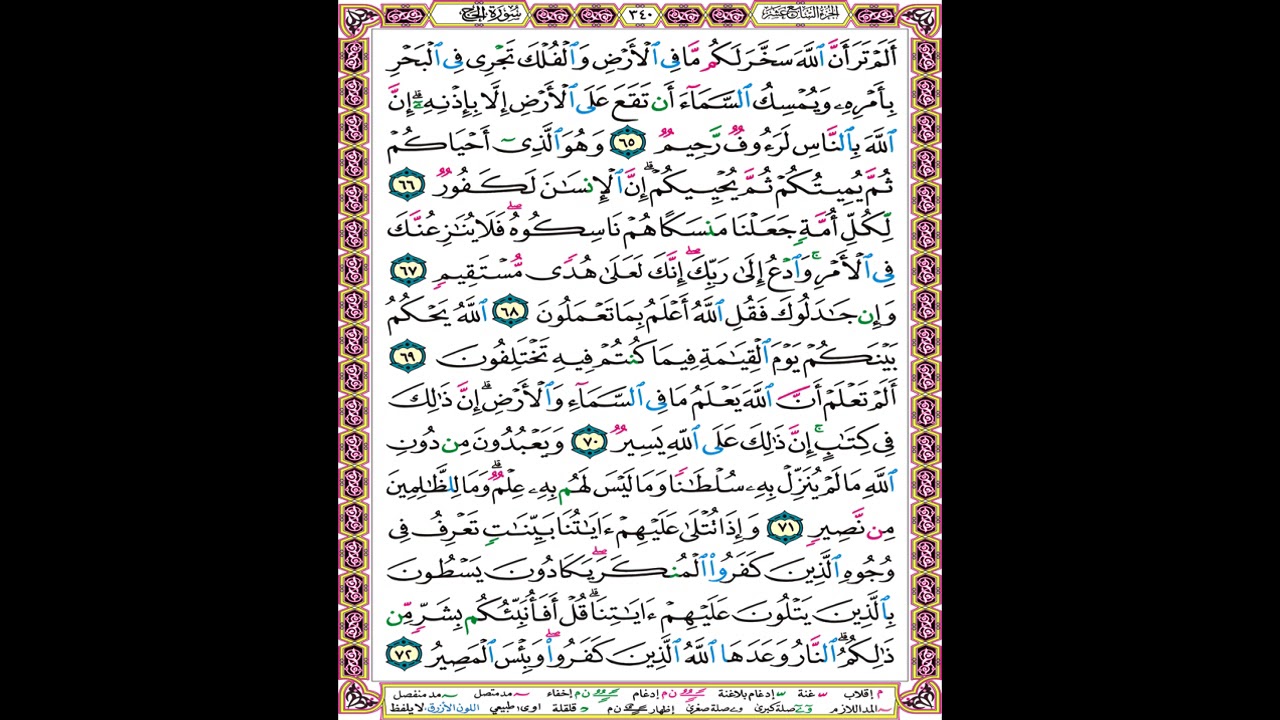 الجزء السابع عشر ٣٤٠ سورة الحج
أَلَمْ تَرَ أَنَّ ٱللَّهَ سَخَّرَ لَكُم مَّا فِى ٱلْأَرْضِ وَٱلْفُلْكَ تَجْرِى فِى ٱلْبَحْرِ
بِأَمْرِهِۦ وَيُمْسِكُ ٱلسَّمَآءَ أَن تَقَعَ عَلَى ٱلْأَرْضِ إِلَّا بِإِذْنِهِۦٓ ۗ إِنَّ
ٱللَّهَ بِٱلنَّاسِ لَرَءُوفٌ رَّحِيمٌ ٦٥ وَهُوَ ٱلَّذِىٓ أَحْيَاكُمْ
ثُمَّ يُمِيتُكُمْ ثُمَّ يُحْيِيكُمْ ۗ إِنَّ ٱلْإِنسَٰنَ لَكَفُورٌ ٦٦
لِّكُلِّ أُمَّةٍ جَعَلْنَا مَنسَكًا هُمْ نَاسِكُوهُ ۖ فَلَا يُنَٰزِعُنَّكَ
فِى ٱلْأَمْرِ ۚ وَٱدْعُ إِلَىٰ رَبِّكَ ۖ إِنَّكَ لَعَلَىٰ هُدًى مُّسْتَقِيمٍ ٦٧
وَإِن جَٰدَلُوكَ فَقُلِ ٱللَّهُ أَعْلَمُ بِمَا تَعْمَلُونَ ٦٨ ٱللَّهُ يَحْكُمُ
بَيْنَكُمْ يَوْمَ ٱلْقِيَٰمَةِ فِيمَا كُنتُمْ فِيهِ تَخْتَلِفُونَ ٦٩
أَلَمْ تَعْلَمْ أَنَّ ٱللَّهَ يَعْلَمُ مَا فِى ٱلسَّمَآءِ وَٱلْأَرْضِ ۗ إِنَّ ذَٰلِكَ
فِى كِتَٰبٍ ۚ إِنَّ ذَٰلِكَ عَلَى ٱللَّهِ يَسِيرٌ ٧٠ وَيَعْبُدُونَ مِن دُونِ
ٱللَّهِ مَا لَمْ يُنَزِّلْ بِهِۦ سُلْطَٰنًا وَمَا لَيْسَ لَهُم بِهِۦ عِلْمٌ ۗ وَمَا لِلظَّٰلِمِينَ
مِن نَّصِيرٍ ٧١ وَإِذَا تُتْلَىٰ عَلَيْهِمْ ءَايَٰتُنَا بَيِّنَٰتٍ تَعْرِفُ فِى
وُجُوهِ ٱلَّذِينَ كَفَرُوا۟ ٱلْمُنكَرَ ۖ يَكَادُونَ يَسْطُونَ
بِٱلَّذِينَ يَتْلُونَ عَلَيْهِمْ ءَايَٰتِنَا ۗ قُلْ أَفَأُنَبِّئُكُم بِشَرٍّ مِّن
ذَٰلِكُمُ ۗ ٱلنَّارُ وَعَدَهَا ٱللَّهُ ٱلَّذِينَ كَفَرُوا۟ ۖ وَبِئْسَ ٱلْمَصِيرُ ٧٢
م إقلاب غنة إدغام بلاغنة ن م إدغام ن م إخفاء مد متصل مد منفصل
المد اللازم صلة كبرى صلة صغرى إظهار ن م قلقلة اوى، طبيعي اللون الأزرق لا يلفظ